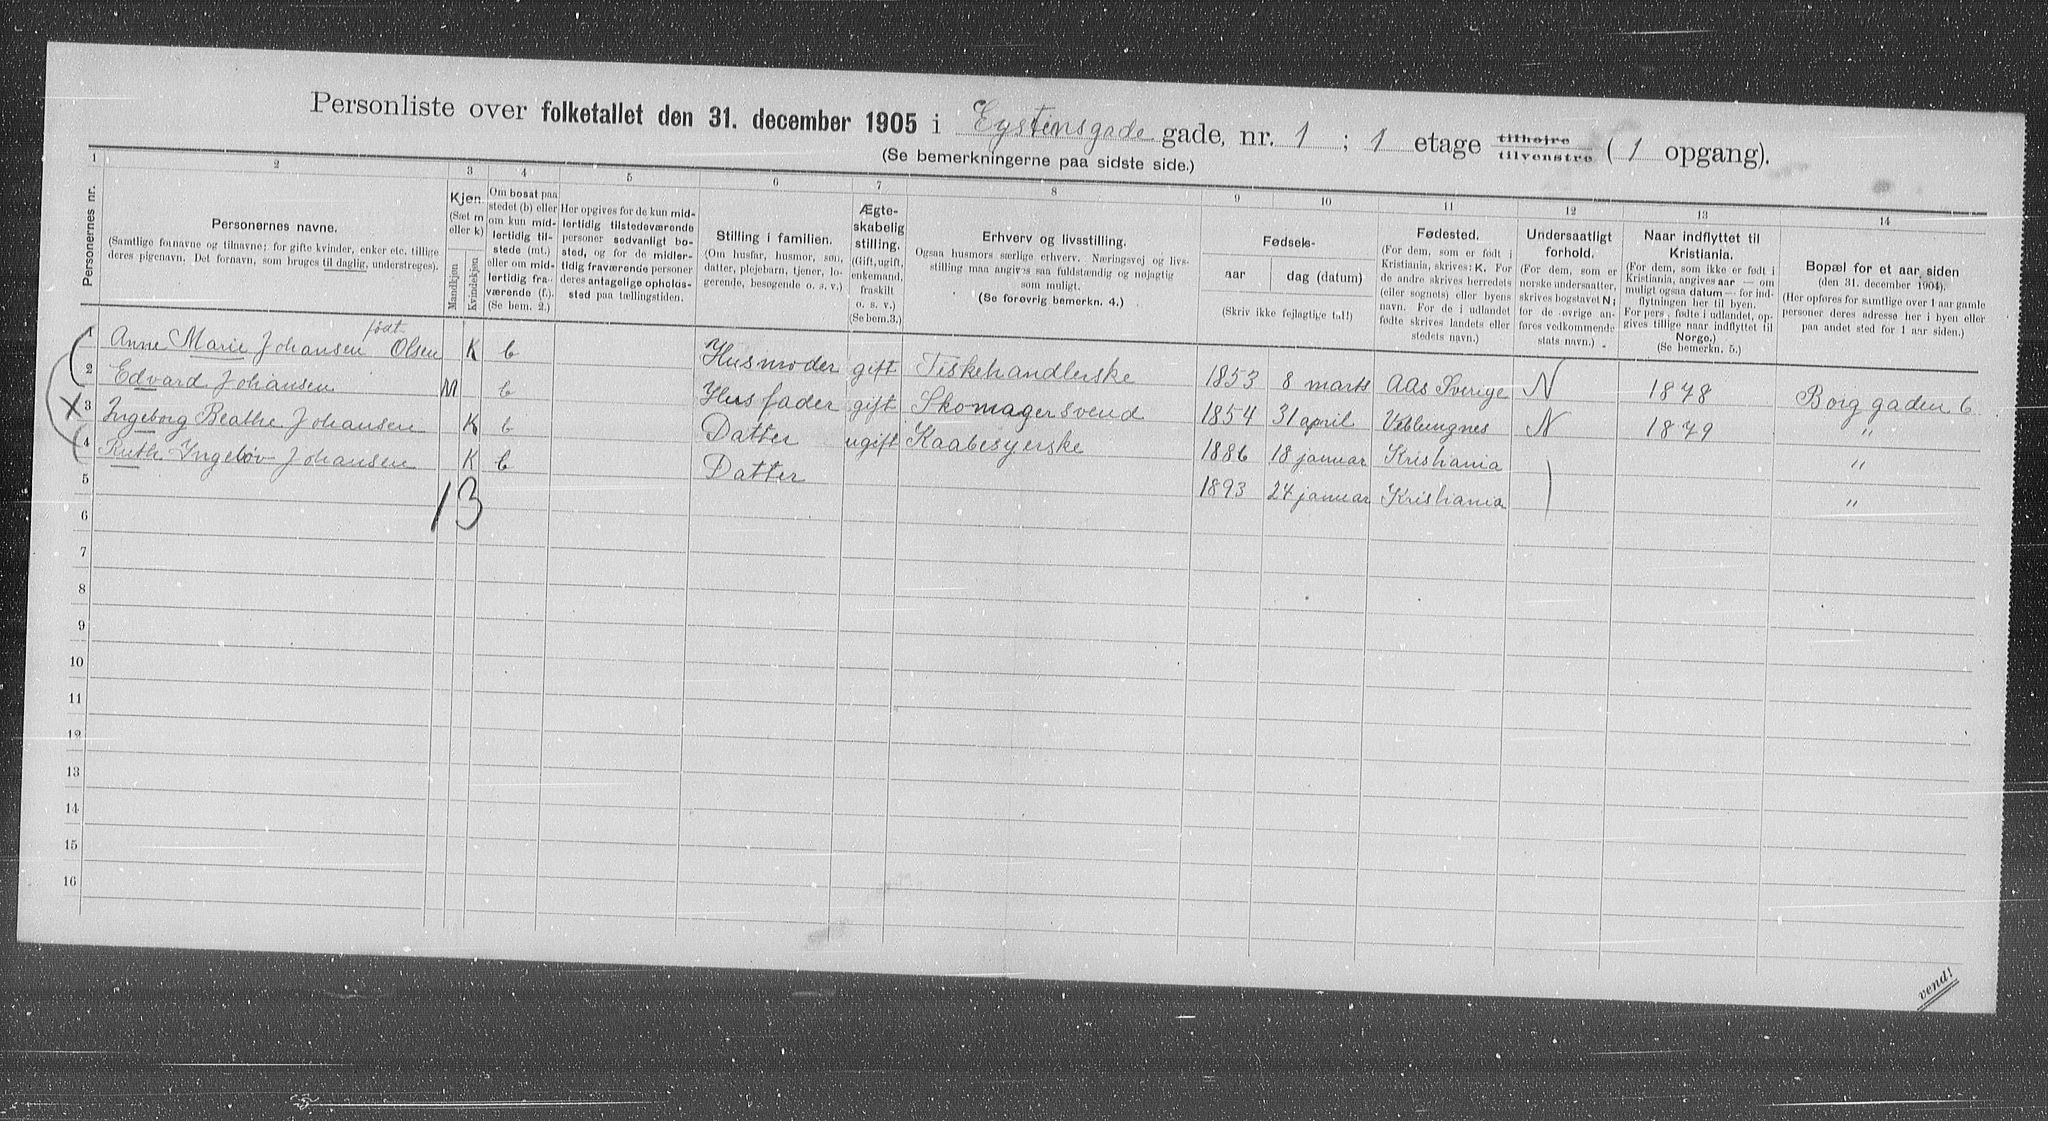 Personliste over folketallet den 31. december 1905 i Eystensgade gade, nr. 1 ; 1 etage tilhøjre tilvenstre ( 1 opgang).
(Se bemerkningerne paa sidste side.)
1 2 3 4 5 6 7 8 9 10 11 12 13 14
Personernes nr.
Personernes navne.
(Samtlige fornavne og tilnavne; for gifte kvinder, enker etc. tillige
deres pigenavn. Det fornavn, som bruges til daglig, understreges).
Kjøn
(Sæt m
eller k)
Mandkjøn
Kvindekjøn
Om bosat paa
stedet (b) eller
om kun mid-
lertidig til-
stede (mt.)
eller om mid-
lertidig fra-
værende (f.).
(Se bem. 2.)
Her opgives for de kun mid-
lertidig tilstedeværende
personer sedvanligt bo-
sted, og for de midler-
tidig fraværende personer
deres antagelige opholds-
sted paa tællingstiden.
Stilling i familien.
(Om husfar, husmor, søn,
datter, plejebarn, tjener, lo-
gerende, besøgende o. s. v.)
Ægte-
skabelig
stilling.
(Gift, ugift,
enkemand,
fraskilt
o. s. v.)
(Se bem.3.)
Erhverv og livsstilling.
Ogsaa husmors særlige erhverv. Næringsvej og livs-
stilling maa angives saa fuldstændig og nøjagtig
som muligt.
(Se forøvrig bemerkn. 4.)
Fødsels-
aar dag (datum)
(Skriv ikke fejlagtige tal!)
Fødested.
(For dem, som er født i
Kristiania, skrives: K. For
de andre skrives herredets
(eller sognets) eller byens
navn. For de i udlandet
fødte skrives landets eller
stedets navn.)
Undersaatligt
forhold.
(For dem, som er
norske undersaatter,
skrives bogstavet N;
for de øvrige an-
føres vedkommende
stats navn.)
Naar indflyttet til
Kristiania.
(For dem, som ikke er født i
Kristiania, angives aar — om
muligt ogsaa datum — for ind-
flytningen her til byen.
For pers. fødte i udlandet, op-
gives tillige naar indflyttet til
Norge.)
(Se bemerkn. 5.)
Bopæl for et aar siden
(den 31. december 1904).
(Her opføres for samtlige over 1 aar gamle
personer deres adresse her i byen eller
paa andet sted for 1 aar siden.)
1 Anne Marie Johansen født Olsen K b Husmoder gift Fiskehandlerske 1853 8 marts Aas Sverige N 1878 Borggaden 6
2 Edvard Johansen M b Husfader gift Skomagersvend 1854 31 april Veblungnes N 1879 "
3 Ingeborg Beathe Johansen K b Datter ugift Kaabesyerske 1886 18 januar Kristiania "
4 Ruth Ingebøv Johansen K b Datter 1893 24 januar Kristiania "
5
1 3
6
7
8
9
10
11
12
13
14
15
16
vend!